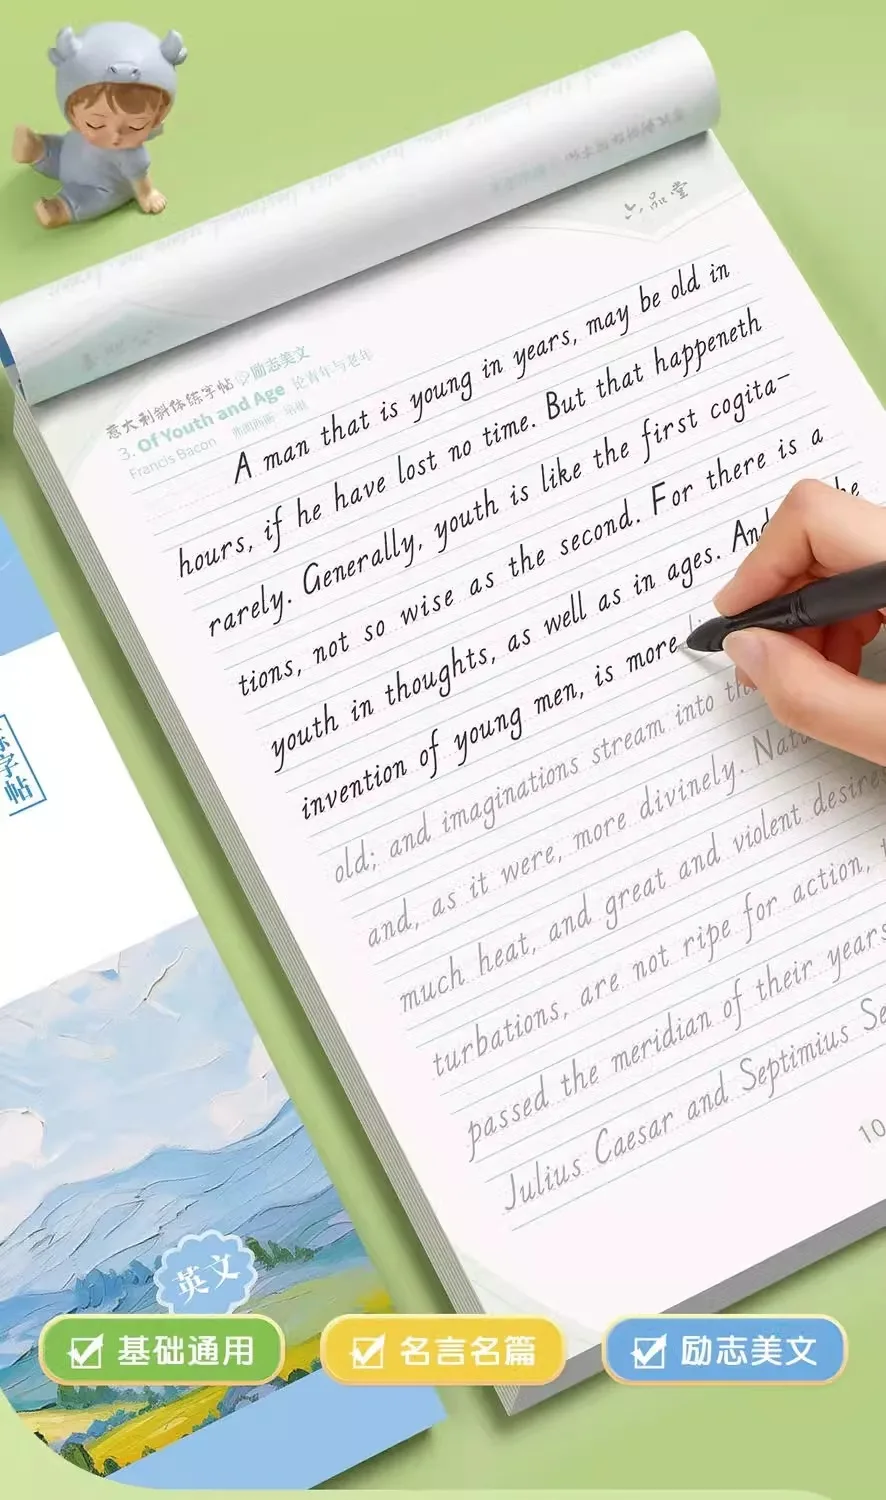 六品堂
意大利斜体练字帖 励志美文
3. Of Youth and Age 论青年与老年
Francis Bacon 弗朗西斯·培根
A man that is young in years, may be old in
hours, if he have lost no time. But that happeneth
rarely. Generally, youth is like the first cogita-
tions, not so wise as the second. For there is a
youth in thoughts, as well as in ages. And the
invention of young men, is more
old; and imaginations stream into
and, as it were, more divinely.
much heat, and great and violent desires
turbations, are not ripe for action,
passed the meridian of their years
Julius Caesar and Septimius
10
字帖
英文
基础通用
名言名篇
励志美文